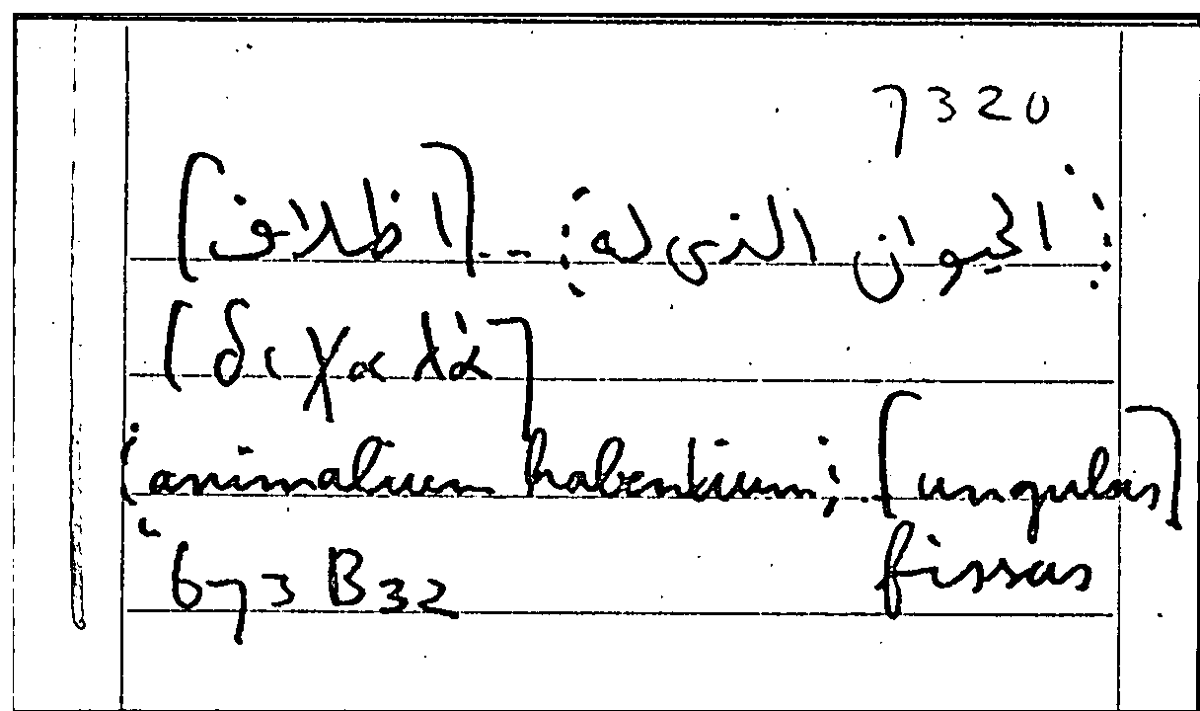 7320
⁝الحيوان الذى له⁝ --[اظلاف]
[διχαλά]
⁝animalium habentium⁝ ..[ungulas]
fissas
673 B32